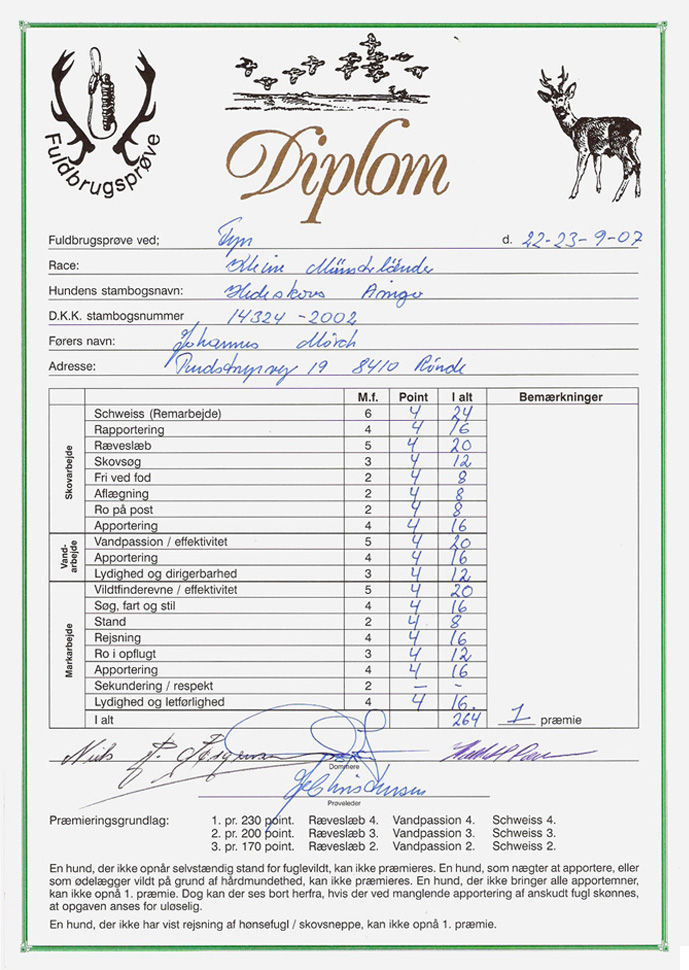 Fuldbrugsprøve
Diplom
Fuldbrugsprøve ved; Fyn d. 22-23-9-07
Race: Kleine Münsterländer
Hundens stambogsnavn: Hedeskovs Amigo
D.K.K. stambogsnummer 14324-2002
Førers navn: Johannes Mörch
Adresse: 19 8410 Rönde
M.f. Point I alt Bemærkninger
Skovarbejde
Schweiss (Remarbejde) 6 4 24
Rapportering 4 4 16
Ræveslæb 5 4 20
Skovsøg 3 4 12
Fri ved fod 2 4 8
Aflægning 2 4 8
Ro på post 2 4 8
Apportering 4 4 16
Vand-
arbejde
Vandpassion / effektivitet 5 4 20
Apportering 4 4 16
Lydighed og dirigerbarhed 3 4 12
Markarbejde
Vildtfinderevne / effektivitet 5 4 20
Søg, fart og stil 4 4 16
Stand 2 4 8
Rejsning 4 4 16
Ro i opflugt 3 4 12
Apportering 4 4 16
Sekundering / respekt 2 – -
Lydighed og letførlighed 4 4 16.
I alt 264 1 præmie
Niels P.
Dommere
Prøveleder
Præmieringsgrundlag: 1. pr. 230 point. Ræveslæb 4. Vandpassion 4. Schweiss 4.
2. pr. 200 point. Ræveslæb 3. Vandpassion 3. Schweiss 3.
3. pr. 170 point. Ræveslæb 2. Vandpassion 2. Schweiss 2.
En hund, der ikke opnår selvstændig stand for fuglevildt, kan ikke præmieres. En hund, som nægter at apportere, eller
som ødelægger vildt på grund af hårdmundethed, kan ikke præmieres. En hund, der ikke bringer alle apportemner,
kan ikke opnå 1. præmie. Dog kan der ses bort herfra, hvis der ved manglende apportering af anskudt fugl skønnes,
at opgaven anses for uløselig.
En hund, der ikke har vist rejsning af hønsefugl / skovsneppe, kan ikke opnå 1. præmie.